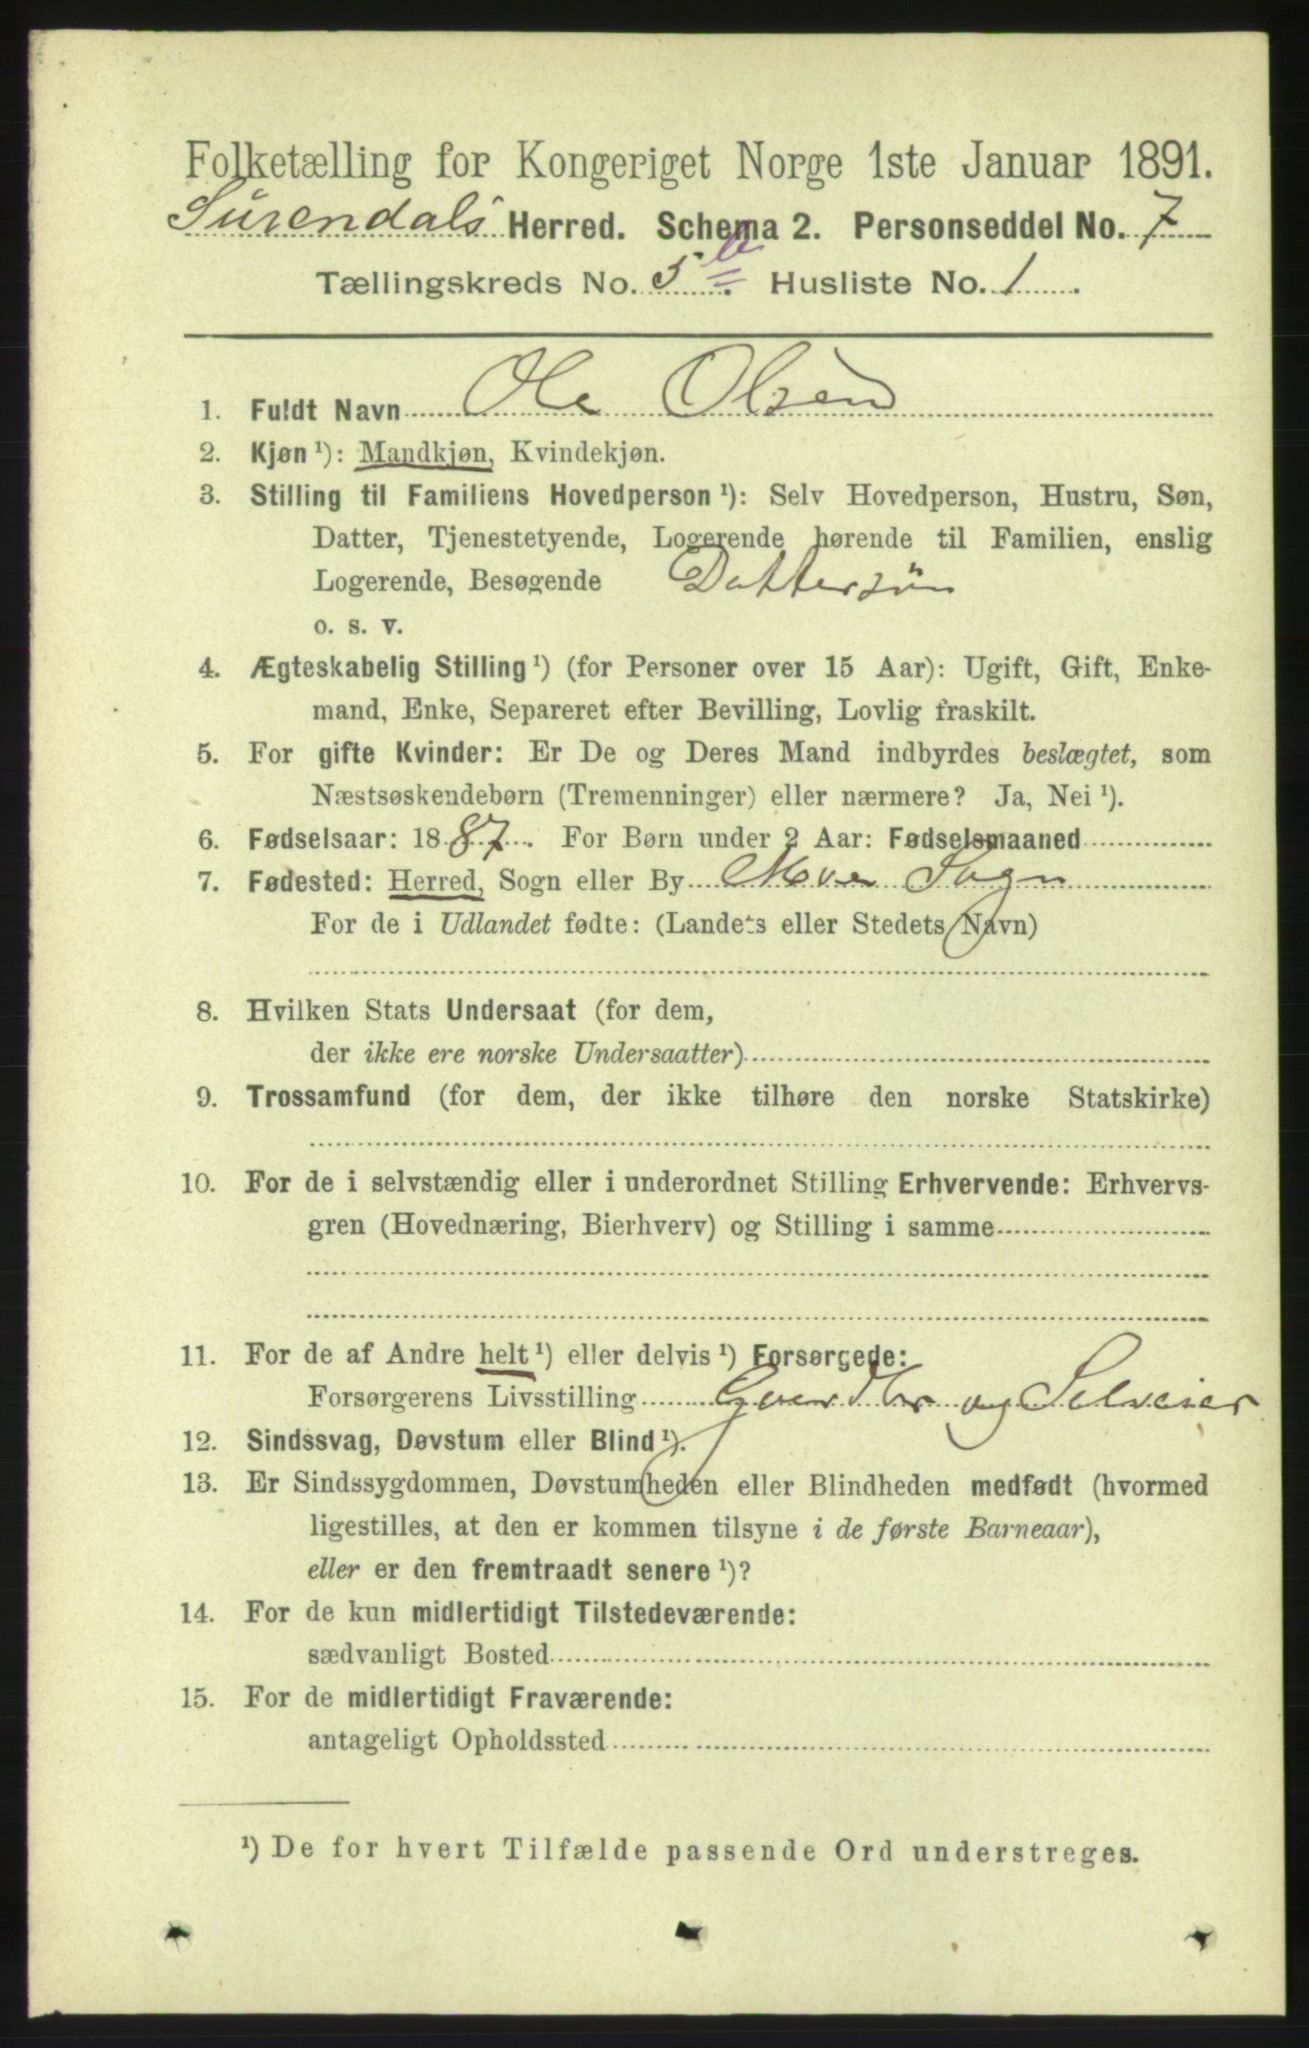 Folketælling for Kongeriget Norge 1ste Januar 1891.
Surendals Herred. Schema 2. Personseddel No. 7
Tællingskreds No. 5 b. Husliste No. 1.
1. Fuldt Navn Ole Olsen
2. Kjøn ¹): Mandkjøn, Kvindekjøn.
3. Stilling til Familiens Hovedperson ¹): Selv Hovedperson, Hustru, Søn,
Datter, Tjenestetyende, Logerende hørende til Familien, enslig
Logerende, Besøgende Dattersøn
o. s. v.
4. Ægteskabelig Stilling ¹) (for Personer over 15 Aar): Ugift, Gift, Enke-
mand, Enke, Separeret efter Bevilling, Lovlig fraskilt.
5. For gifte Kvinder: Er De og Deres Mand indbyrdes beslægtet, som
Næstsøskendebørn (Tremenninger) eller nærmere? Ja, Nei ¹).
6. Fødselsaar: 1887. For Børn under 2 Aar: Fødselsmaaned
7. Fødested: Herred, Sogn eller By Moe Sogn
For de i Udlandet fødte: (Landets eller Stedets Navn)
8. Hvilken Stats Undersaat (for dem,
der ikke ere norske Undersaatter)
9. Trossamfund (for dem, der ikke tilhøre den norske Statskirke)
10. For de i selvstændig eller i underordnet Stilling Erhvervende: Erhvervs-
gren (Hovednæring, Bierhverv) og Stilling i samme
11. For de af Andre helt ¹) eller delvis ¹) Forsørgede:
Forsørgerens Livsstilling Gaardbr og Selveier
12. Sindssvag, Døvstum eller Blind ¹).
13. Er Sindssygdommen, Døvstumheden eller Blindheden medfødt (hvormed
ligestilles, at den er kommen tilsyne i de første Barneaar),
eller er den fremtraadt senere ¹)?
14. For de kun midlertidigt Tilstedeværende:
sædvanligt Bosted
15. For de midlertidigt Fraværende:
antageligt Opholdssted
¹) De for hvert Tilfælde passende Ord understreges.